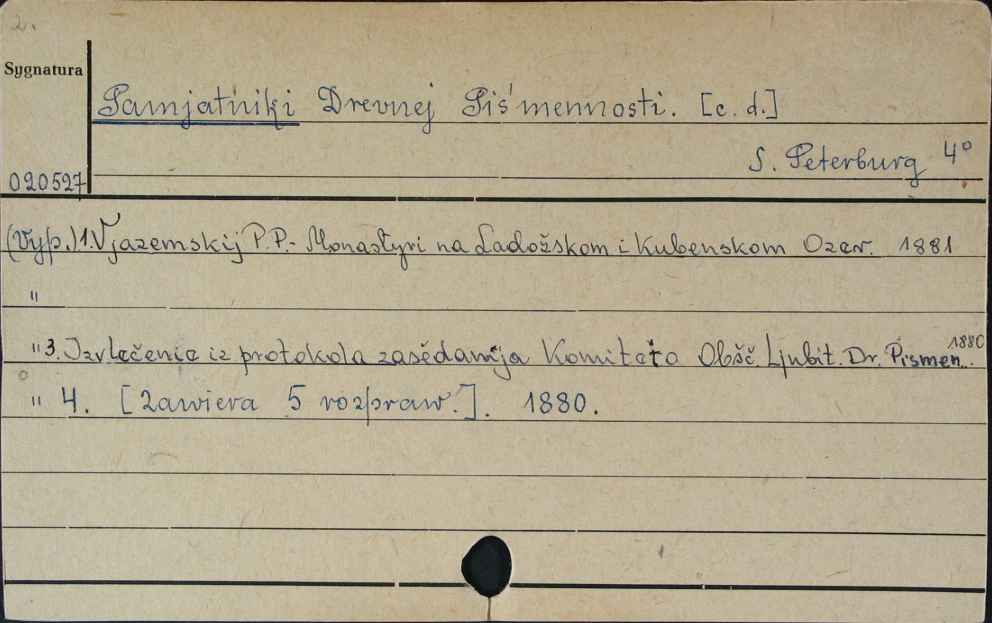 2.
Sygnatura
Pamjatniki Drevnej Piś'mennosti. [c. d.]
S. Peterburg 4°
020527
(Vyp.) 1. Vjazemskij P. P. - Monastyri na Ladožskom i Kubenskom Ozer. 1881
"
" 3. Izvlečenie iz protokola zasědanija Komiteta Obšč. Ljubit. Dr. Pismen. 1880
" 4. [Zawiera 5 rozpraw.]. 1880.